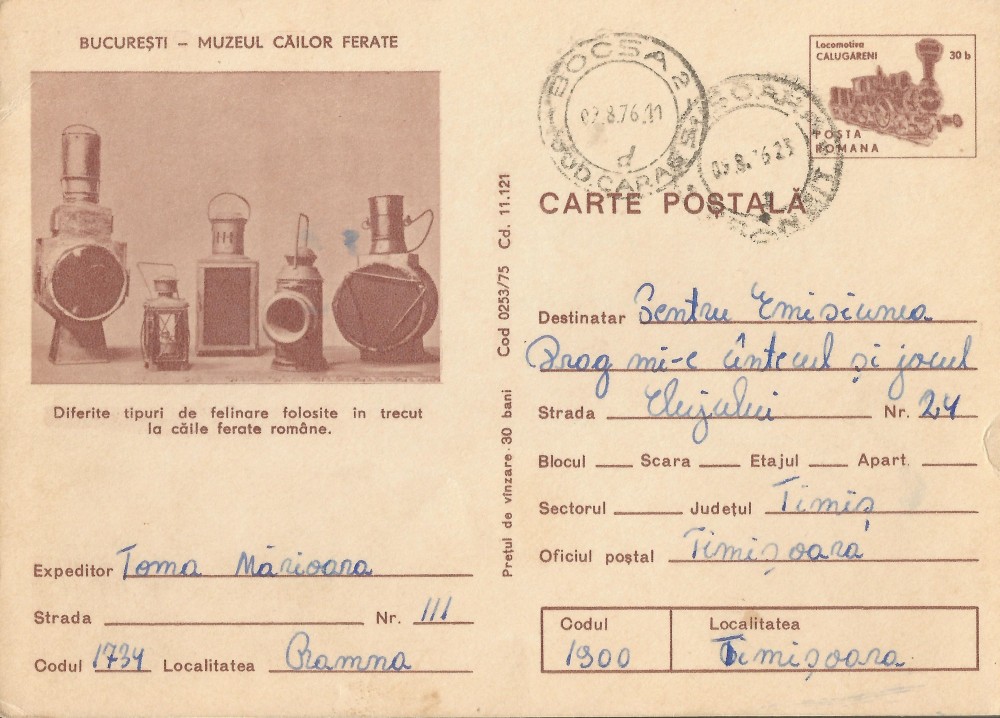 BUCUREȘTI – MUZEUL CĂILOR FERATE
Diferite tipuri de felinare folosite in trecut
la căile ferate române.
Expeditor Toma Mărioara
Strada Nr. 111
Codul 1734 Localitatea Ramna
Prețul de vînzare 30 bani Cod 0253/75 Cd. 11.121
BOCSA 2
JUD. CARAS S
02.8.76.11
d
76-23
Locomotiva
CALUGĂRENI 30 b
POSTA
ROMANA
CARTE POȘTALĂ
Destinatar Pentru Emisiunea
Drag mi-e cîntecul și jocul
Strada Clujului Nr. 24
Blocul Scara Etajul Apart.
Sectorul Județul Timiș
Oficiul poștal Timișoara
Codul Localitatea
1900 Timișoara